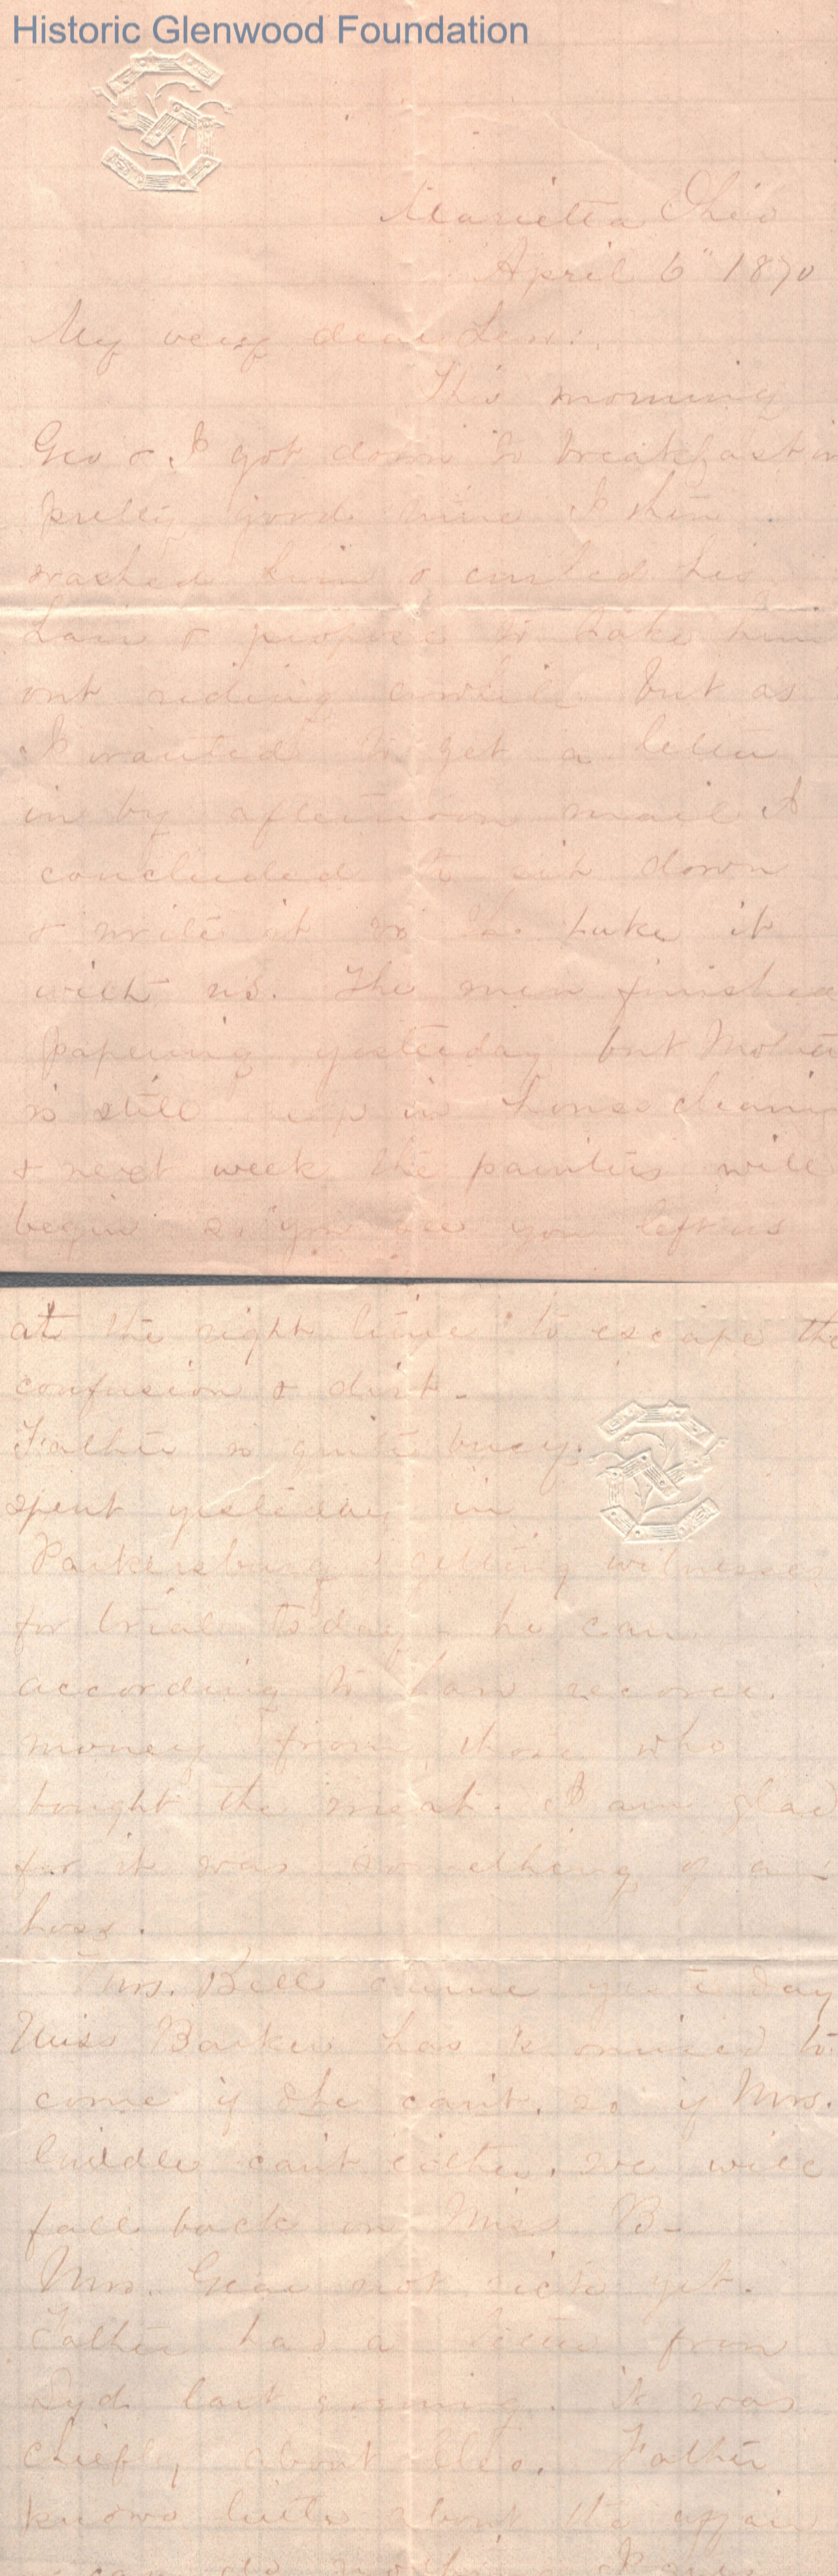 Historic Glenwood Foundation
Marietta Ohio
April 6" 1870
My very dear
This morning
Geo & I got down to breakfast in
pretty good time I then
washed him & curled his
hair & propose to take him
out riding awhile. but as
I wanted to get a letter
in by afternoon mail I
concluded to sit down
& write it so to take it
with us. The men finished
papering yesterday but Mother
is still up in house cleaning
& next week the painters will
begin so you see you left us
at the right time to escape the
confusion & dirt -
Father is quite busy.
spent yesterday in
Parkersburg getting witnesses
for trial to day - he can
according to law recover
money from those who
bought the meat. I am glad
for it was something of a
loss.
Mrs. Bell came yesterday
Miss Barker has promised to
come if she can't. so if Mrs.
can't either, we will
fall back on Miss B-
Mrs. not sick yet.
Father had a letter from
Syd last evening. it was
chiefly about
Father
knows little about the affair
can do nothing